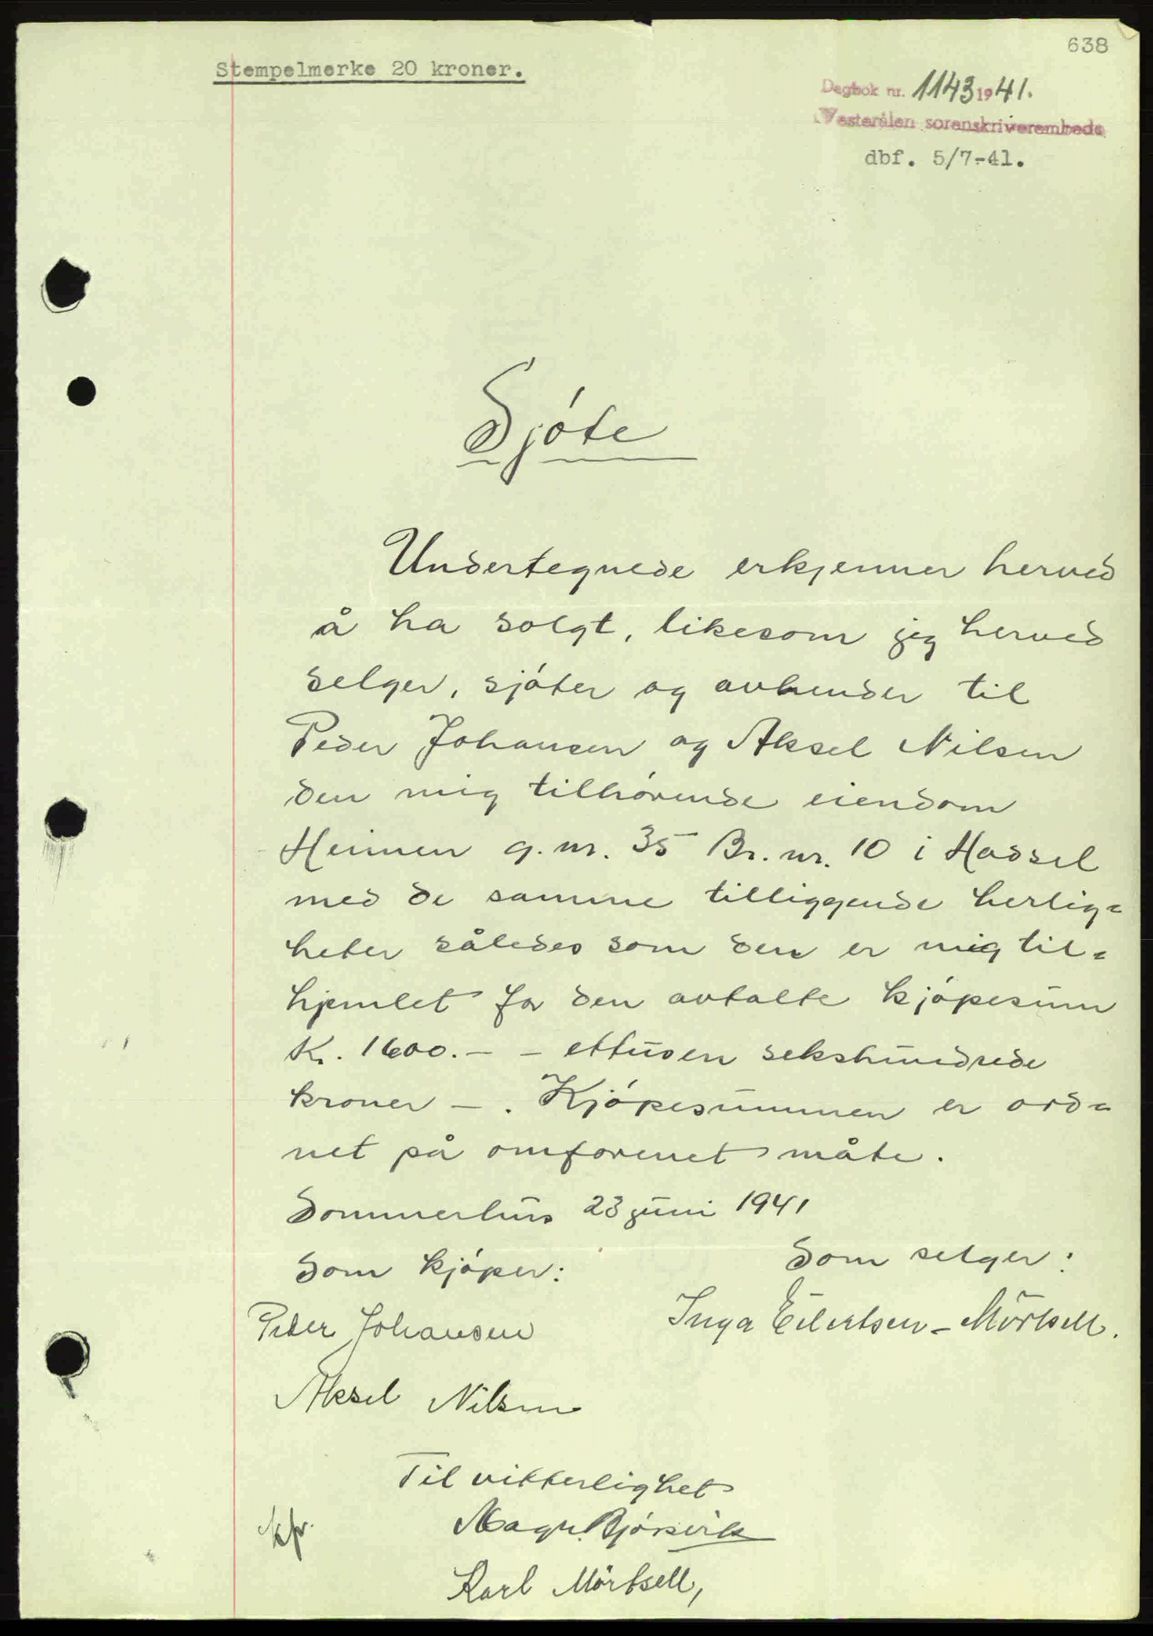 638
Stempelmerke 20 kroner.
Dagbok nr. 1143 1941.
Vesterålen sorenskriverembede
dbf. 5/7-41.
Sjóte
Undertegnede erkjenner herved
å ha solgt, likesom jeg herved
selger, sjóter og avhender til
Peder Johansen og Aksel Nilsen
den mig tilhórende eiendom
Heimen g.nr. 35 Br.nr. 10 i Hadsel
med de samme tilliggende herlig=
heter således som den er mig til=
hjemlet for den avtalte kjópesum
Kr. 1600.- - ettusen sekshundrede
kroner - . Kjópesummen er ord=
net på omforenet måte.
Sommerhus 23 juni 1941
Som kjóper:
Som selger:
Peder Johansen
Inga Eilertsen - Mörtsell.
Aksel Nilsen
Til vitterlighet
Magn. Bjórsvik
Karl Mörtsell,